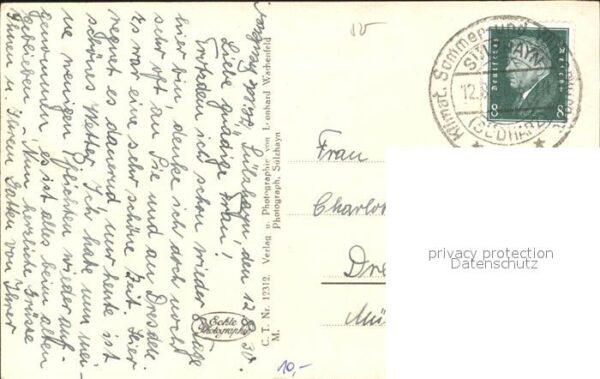 Sülzhayn, den 12.8.30.
Liebe gnädige Frau!
Trotzdem ich schon wieder 8 Tage
hier bin, denke ich doch noch
sehr oft an Sie und an Dresden.
Es war eine sehr schöne Zeit. Hier
regnet es dauernd, nur heute ist
schönes Wetter. Ich habe nun mei-
ne wenigen Pflichten wieder auf-
genommen, es ist alles beim alten
geblieben. Nun herzliche Grüsse
Ihnen u. Ihrem Gatten von Ihrer
C. T. Nr. 12312. Verlag u. Photographie von Leonhard Wachenfeld
M. Photograph, Sülzhayn
Echte
Photographie
10,-
Klimat. Sommer- und
SÜLZHAYN
12.8
(SÜDHARZ)
Deutsches Reich
8 8
Frau
Charlo
Dre
privacy protection
Datenschutz